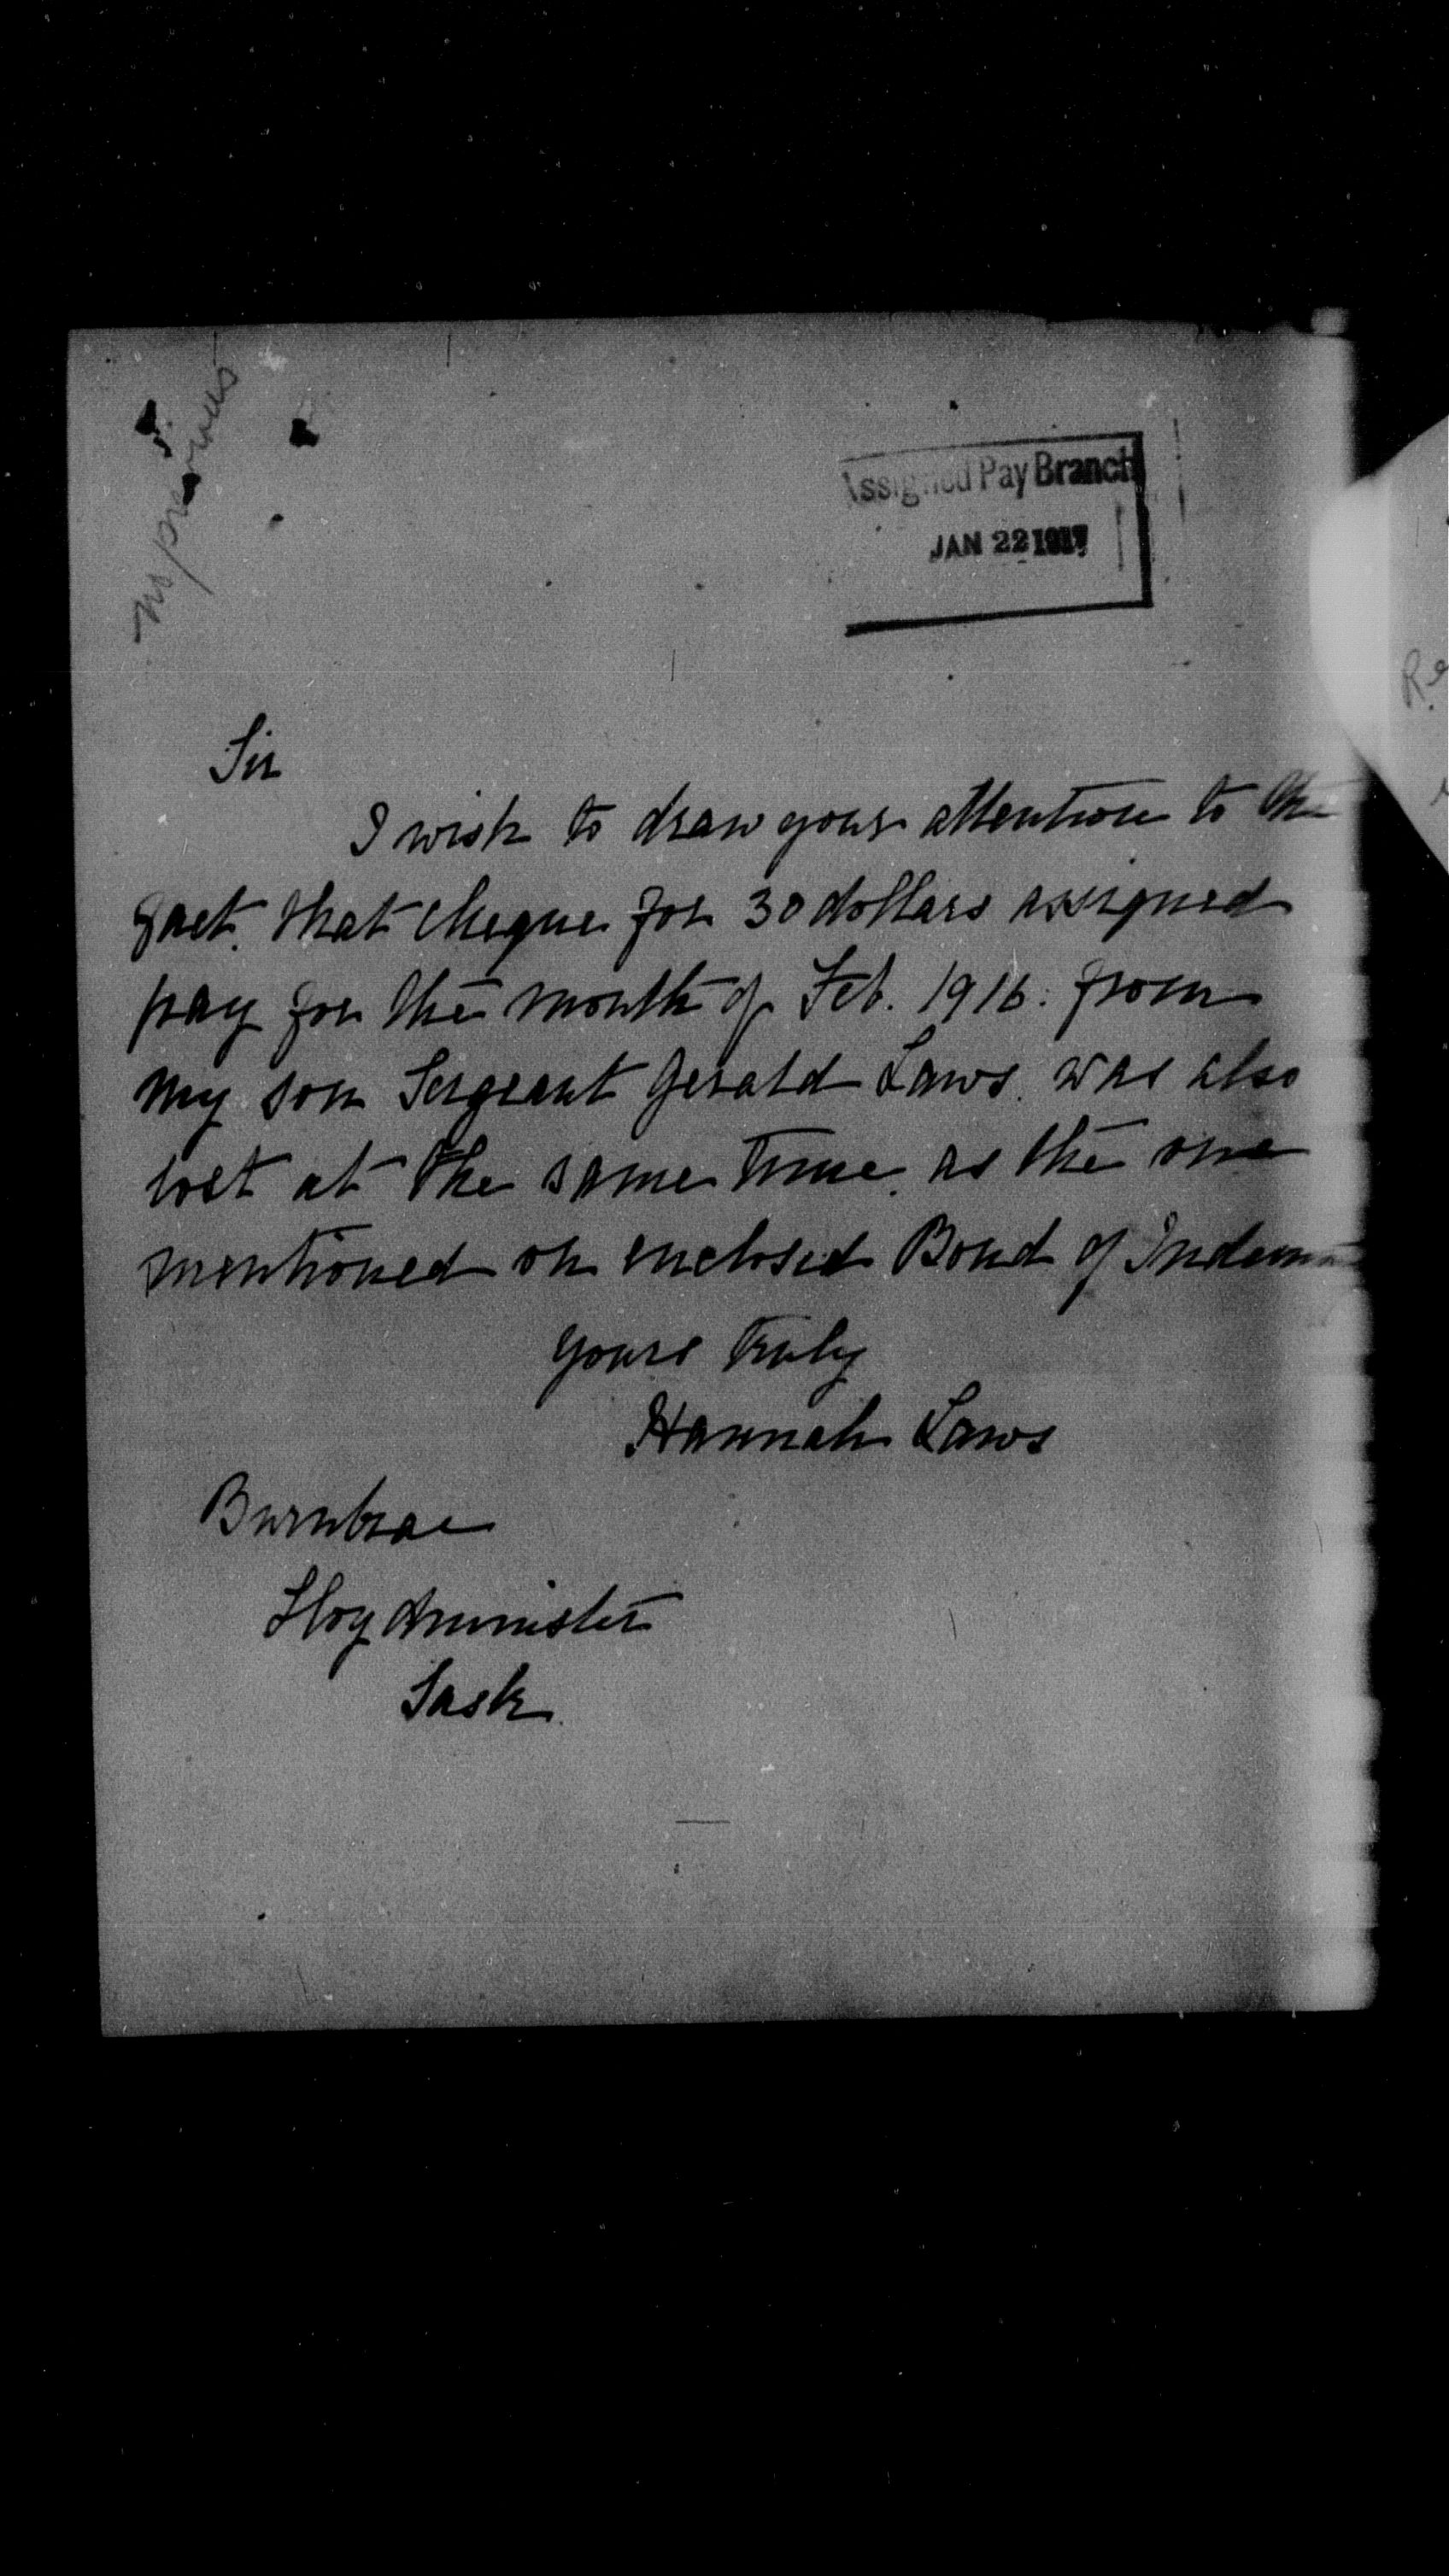 no previous
Assigned Pay Branch
JAN 22 1917
Sir
I wish to draw your attention to the
fact. that cheque for 30 dollars assigned
pay for the month of Feb. 1916. from
my son Sergeant Gerald Laws. was also
lost at the same time. as the one
mentioned on enclosed Bond of Indem
Yours truly
Hannah Laws
Burnbrae
Lloydminister
Sask.
Re